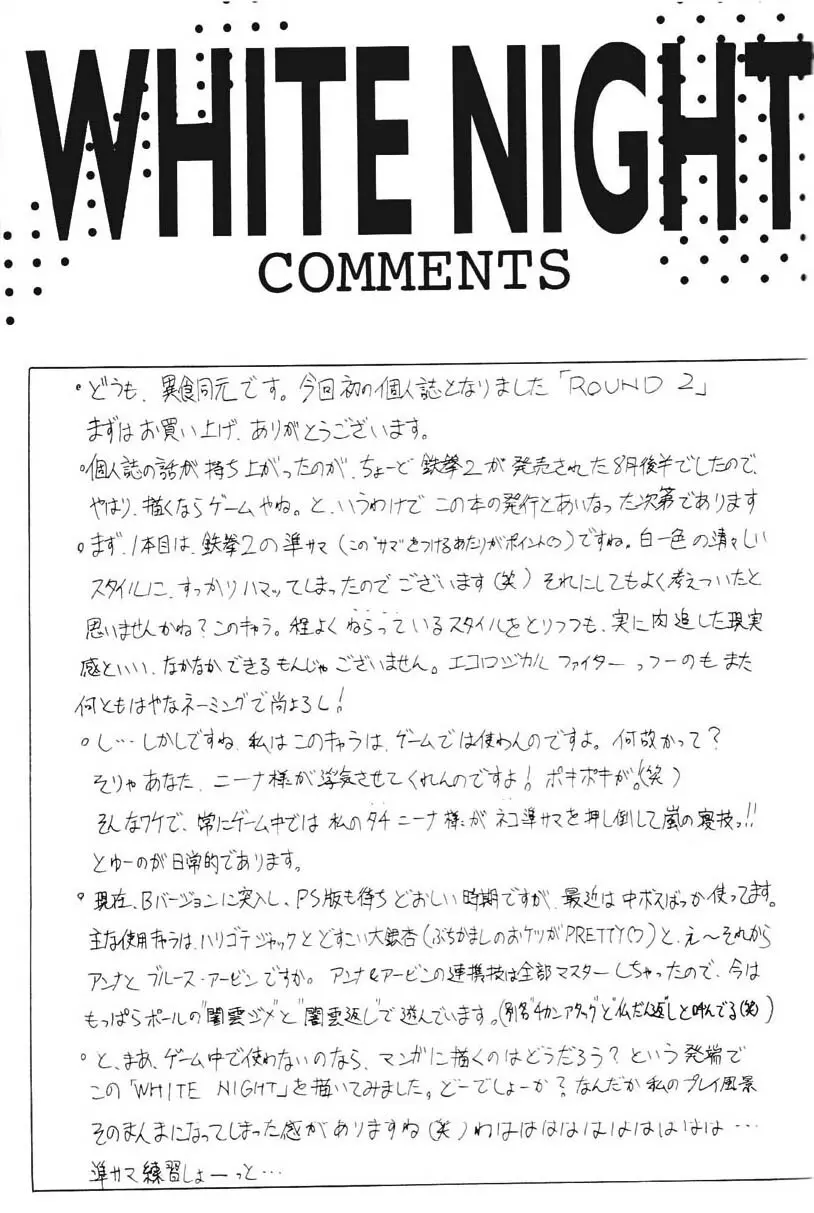 WHITE NIGHT
COMMENTS
・どうも、異食同元です。今回初の個人誌となりました「ROUND 2」
まずはお買い上げ、ありがとうございます。
・個人誌の話が持ち上がったのが、ちょーど鉄拳2が発売された8月後半でしたので、
やはり、描くならゲームやね。と、いうわけでこの本の発行とあいなった次第であります
・まず、1本目は、鉄拳2の準サマ(この"サマ"をつけるあたりがポイント♡)ですね。白一色の清々しい
スタイルに、すっかりハマッてしまったのでございます(笑)それにしてもよく考えついたと
思いませんかね?このキャラ。程よくねらっているスタイルをとりつつも、実に肉迫した現実
感といい、なかなかできるもんじゃございません。エコロジカルファイターっつーのもまた
何ともはやなネーミングで尚よろし!
・し…しかしですね、私はこのキャラは、ゲームでは使わんのですよ。何故かって?
そりゃあなた、ニーナ様が浮気させてくれんのですよ!ポキポキが!(笑)
そんなワケで、常にゲーム中では私のタチニーナ様がネコ準サマを押し倒して嵐の寝技っ!!
とゆーのが日常的であります。
・現在、Bバージョンに突入し、PS版も待ちどおしい時期ですが、最近は中ボスばっか使ってます。
主な使用キャラは、ハリゴテジャックとどすこい大銀杏(ぶちかましのおケツがPRETTY♡)と、え~それから
アンナとブルース・アービンですか。アンナ&アービンの連携技は全部マスターしちゃったので、今は
もっぱらポールの"闇雲ジメ"と"闇雲返し"で遊んでいます。(別名"チカンアタック"と"仏だん返し"と呼んでる(笑))
・と、まあ、ゲーム中で使わないのなら、マンガに描くのはどうだろう?という発端で
この「WHITE NIGHT」を描いてみました。どーでしょーか?なんだか私のプレイ風景
そのまんまになってしまった感がありますね(笑)わはははははははははは…
準サマ練習しょーっと…